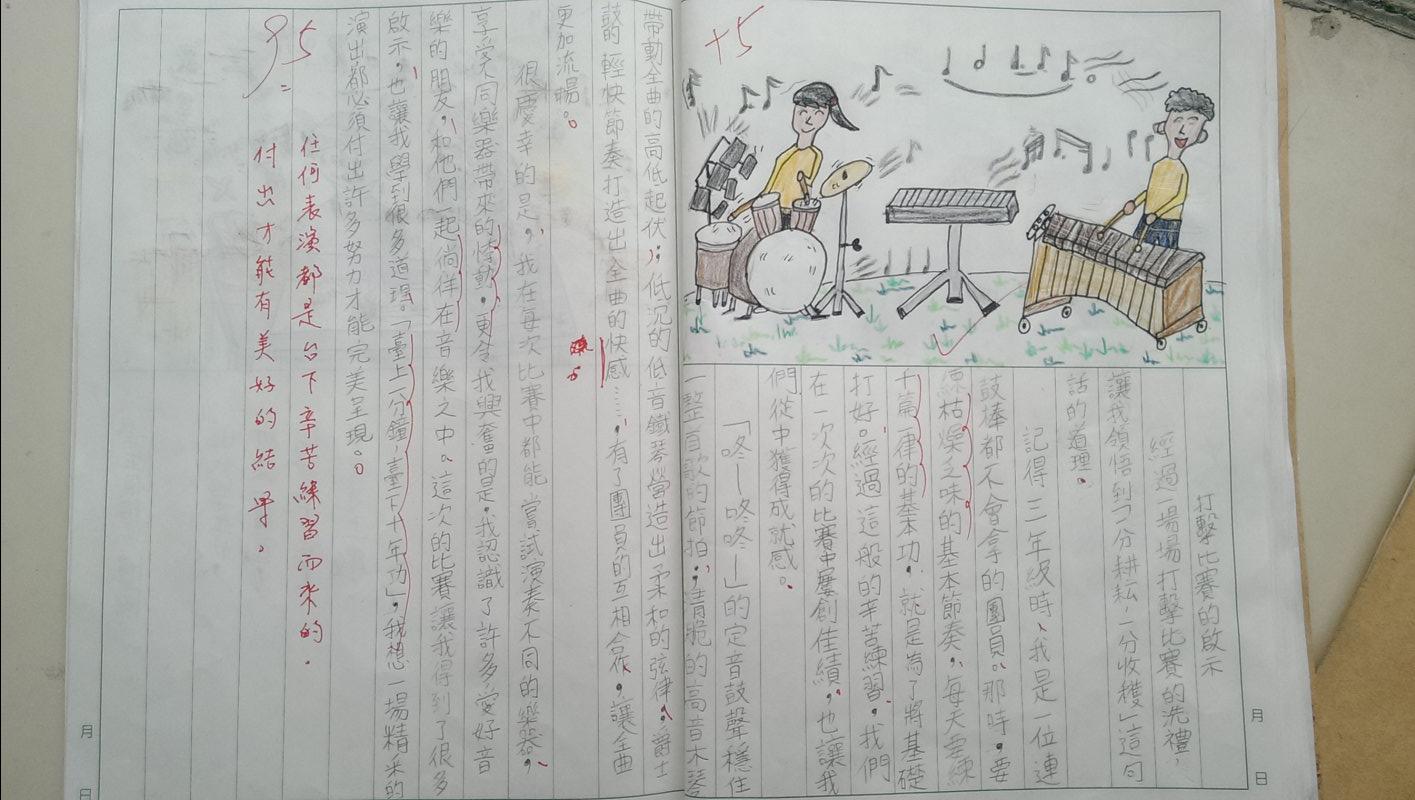 打擊比賽的啟示
經過一場場打擊比賽的洗禮，
讓我領悟到「一分耕耘，一分收穫」這句
話的道理。
記得三年級時、我是一位連
鼓棒都不會拿的團員。那時，要
練枯燥乏味的基本節奏，每天要練
千篇一律的基本功，就是為了將基礎
打好。經過這般的辛苦練習，我們
在一次次的比賽中屢創佳績，也讓我
們從中獲得成就感。
「咚—咚咚—」的定音鼓聲穩住
一整首歌的節拍，清脆的高音木琴
+5
帶動全曲的高低起伏；低沉的低音鐵琴營造出柔和的弦律，爵士
鼓的輕快節奏打造出全曲的快感……，有了團員的互相合作，讓全曲
更加流暢。
很慶幸的是，我在每次比賽中都能嘗試演奏不同的樂器，
享受不同樂器帶來的悸動，更令我興奮的是，我認識了許多愛好音
樂的朋友，和他們一起徜徉在音樂之中。這次的比賽讓我得到了很多
啟示，也讓我學到很多道理。「臺上一分鐘，臺下十年功」，我想一場精采的
演出都必須付出許多努力才能完美呈現。
任何表演都是台下辛苦練習而來的，
付出才能有美好的結果。
95
月
日
月
日